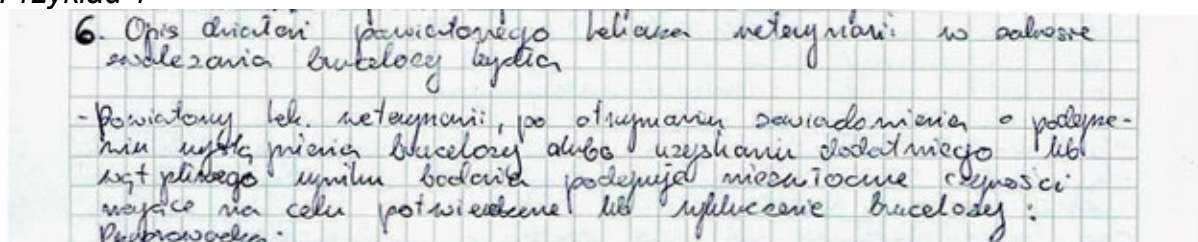 Przykład 1
6. Opis działań powiatowego lekarza weterynarii w zakresie
zwalczania brucelozy bydła
- Powiatowy lek. weterynarii, po otrzymaniu zawiadomienia o podejrze-
niu wystąpienia brucelozy albo uzyskaniu dodatniego lub
wątpliwego wyniku badania podejmuje niezwłoczne czynności
mające na celu potwierdzenie lub wykluczenie brucelozy: